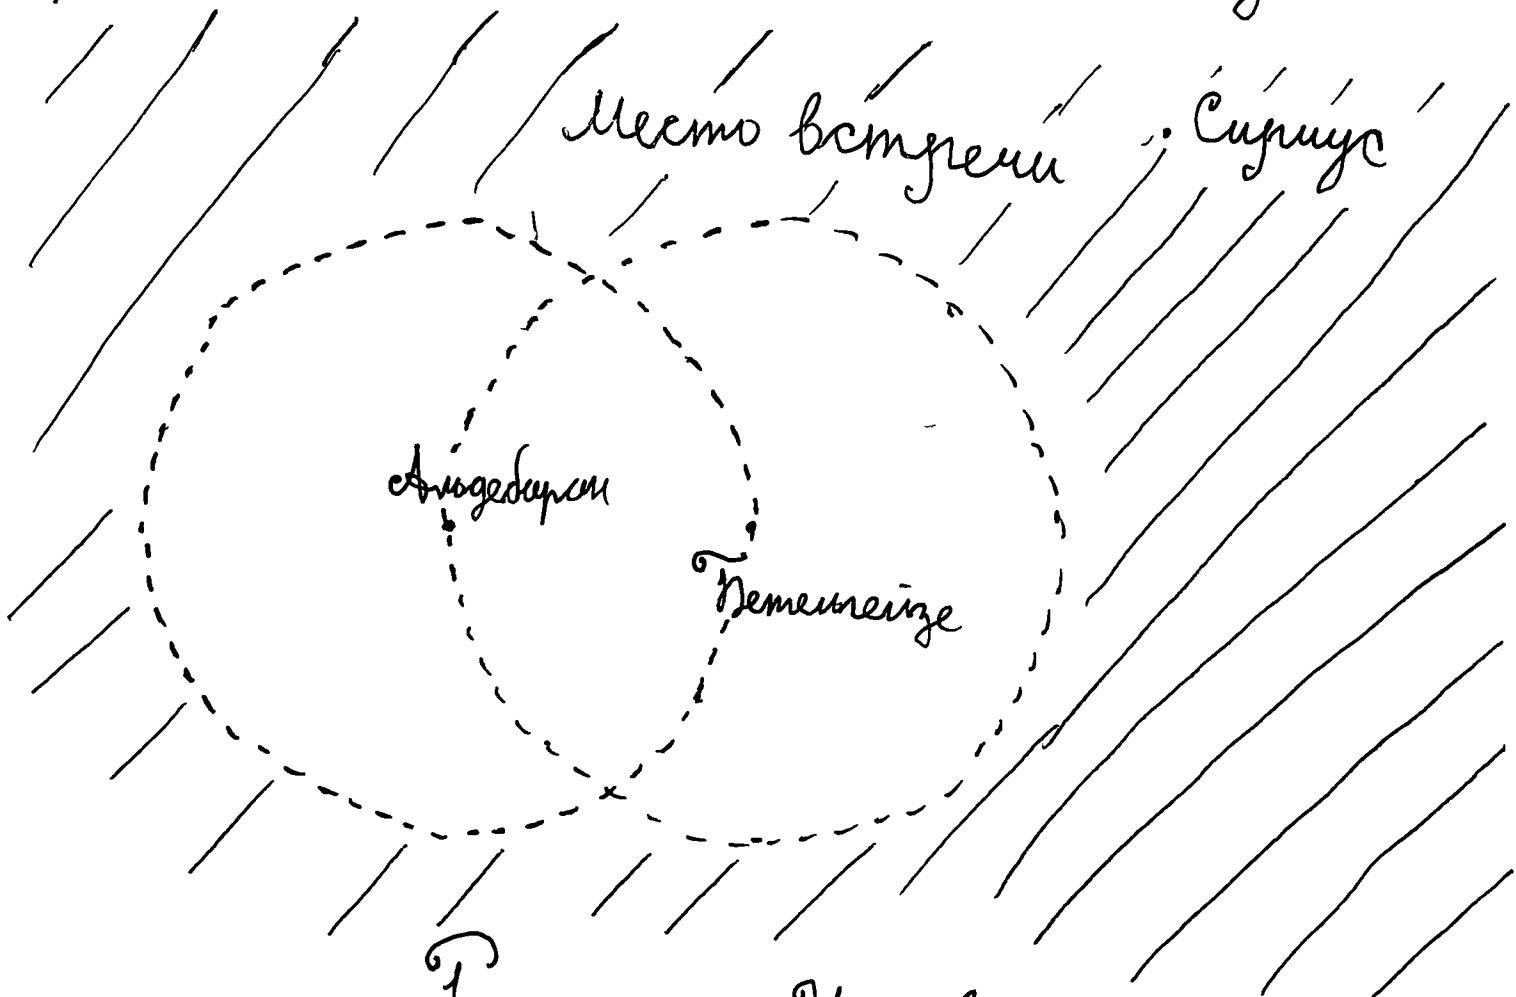 Место встречи
Сириус
Альдебаран
Бетельгейзе